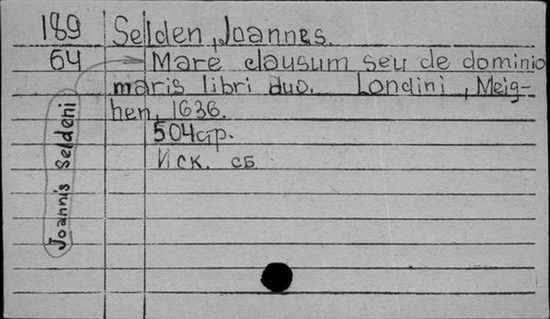 189 Selden, Joannes.
64 Mare clausum seu de dominio
maris libri duo. Londini, Meig-
hen, 1636.
504стр.
Иск. сб
Joannis Seldeni